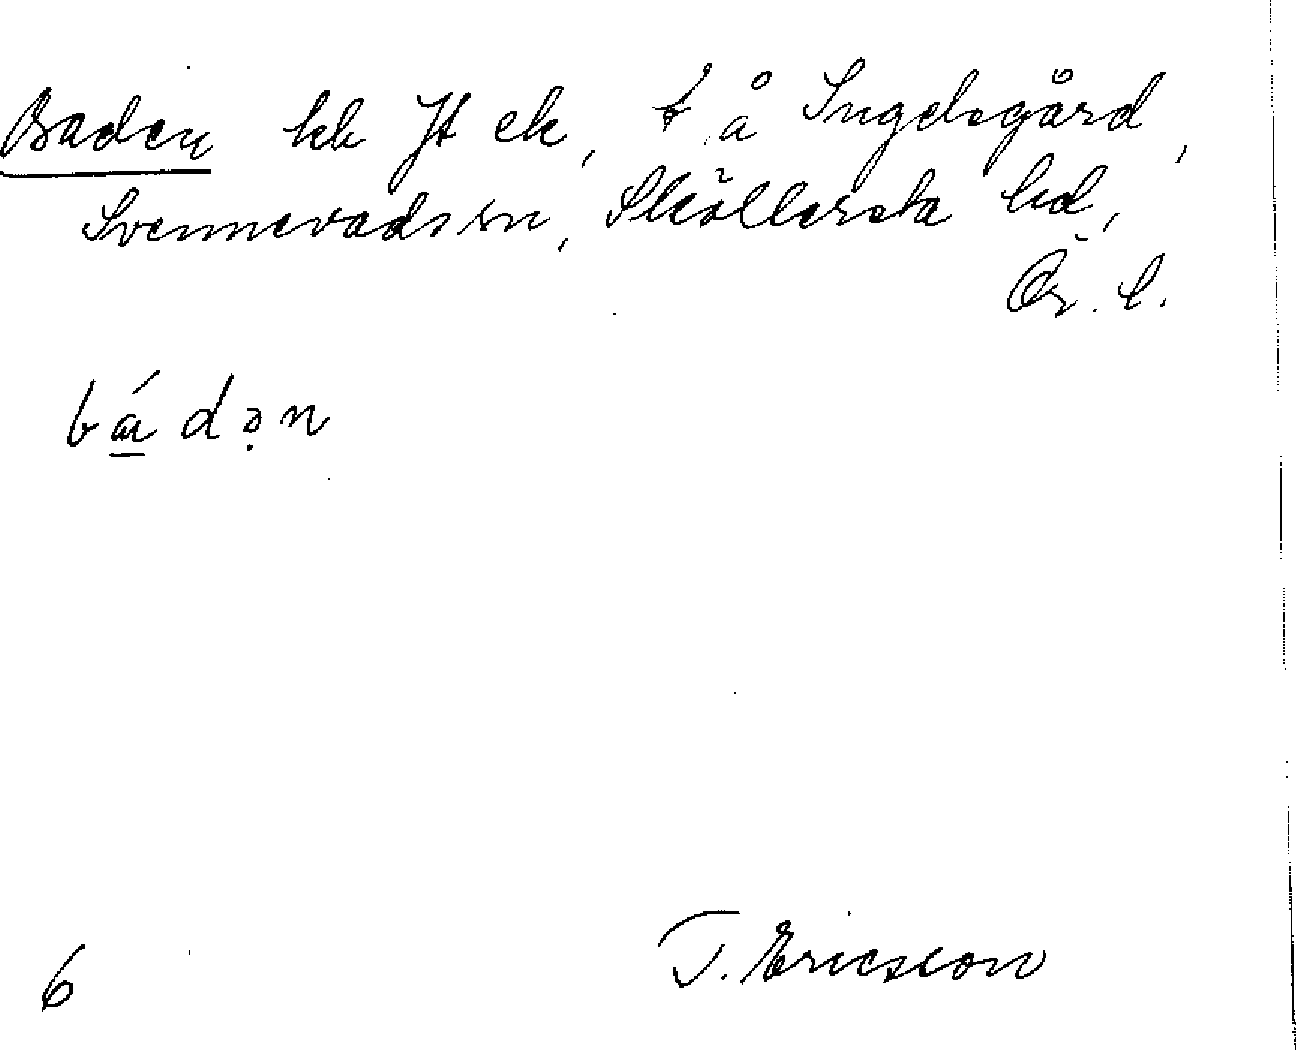 Baden hk Jt ek, t å Ingelsgård,
Svennevads sn, Sköllersta hd,
Ör. l.
bádən
6
T. Ericsson